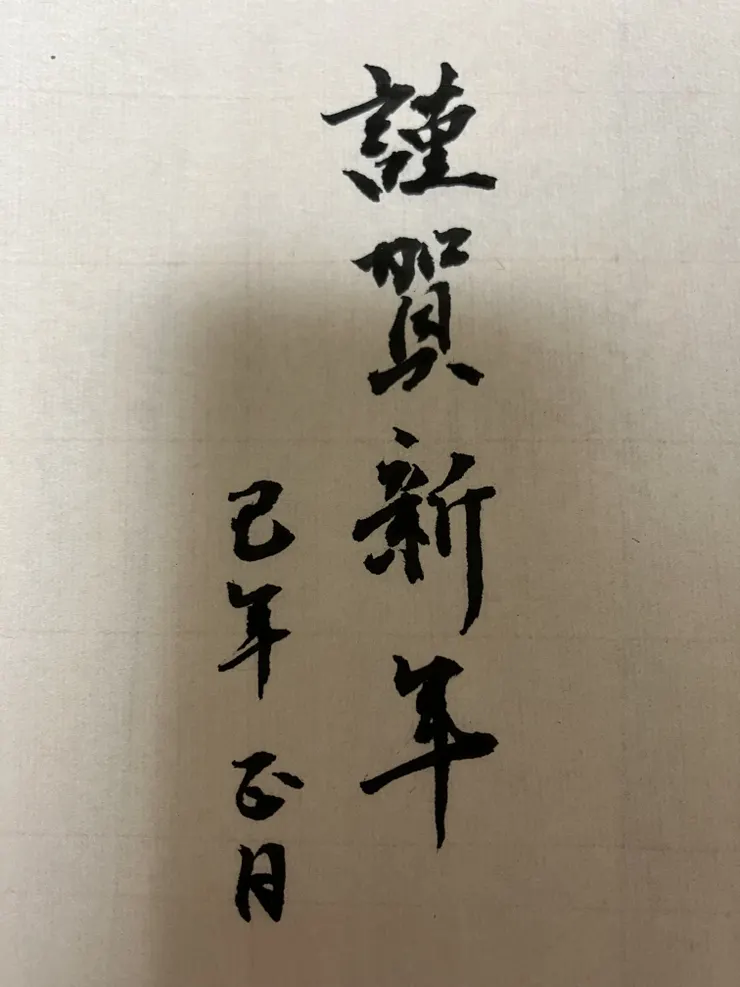 謹賀新年
巳年 正月